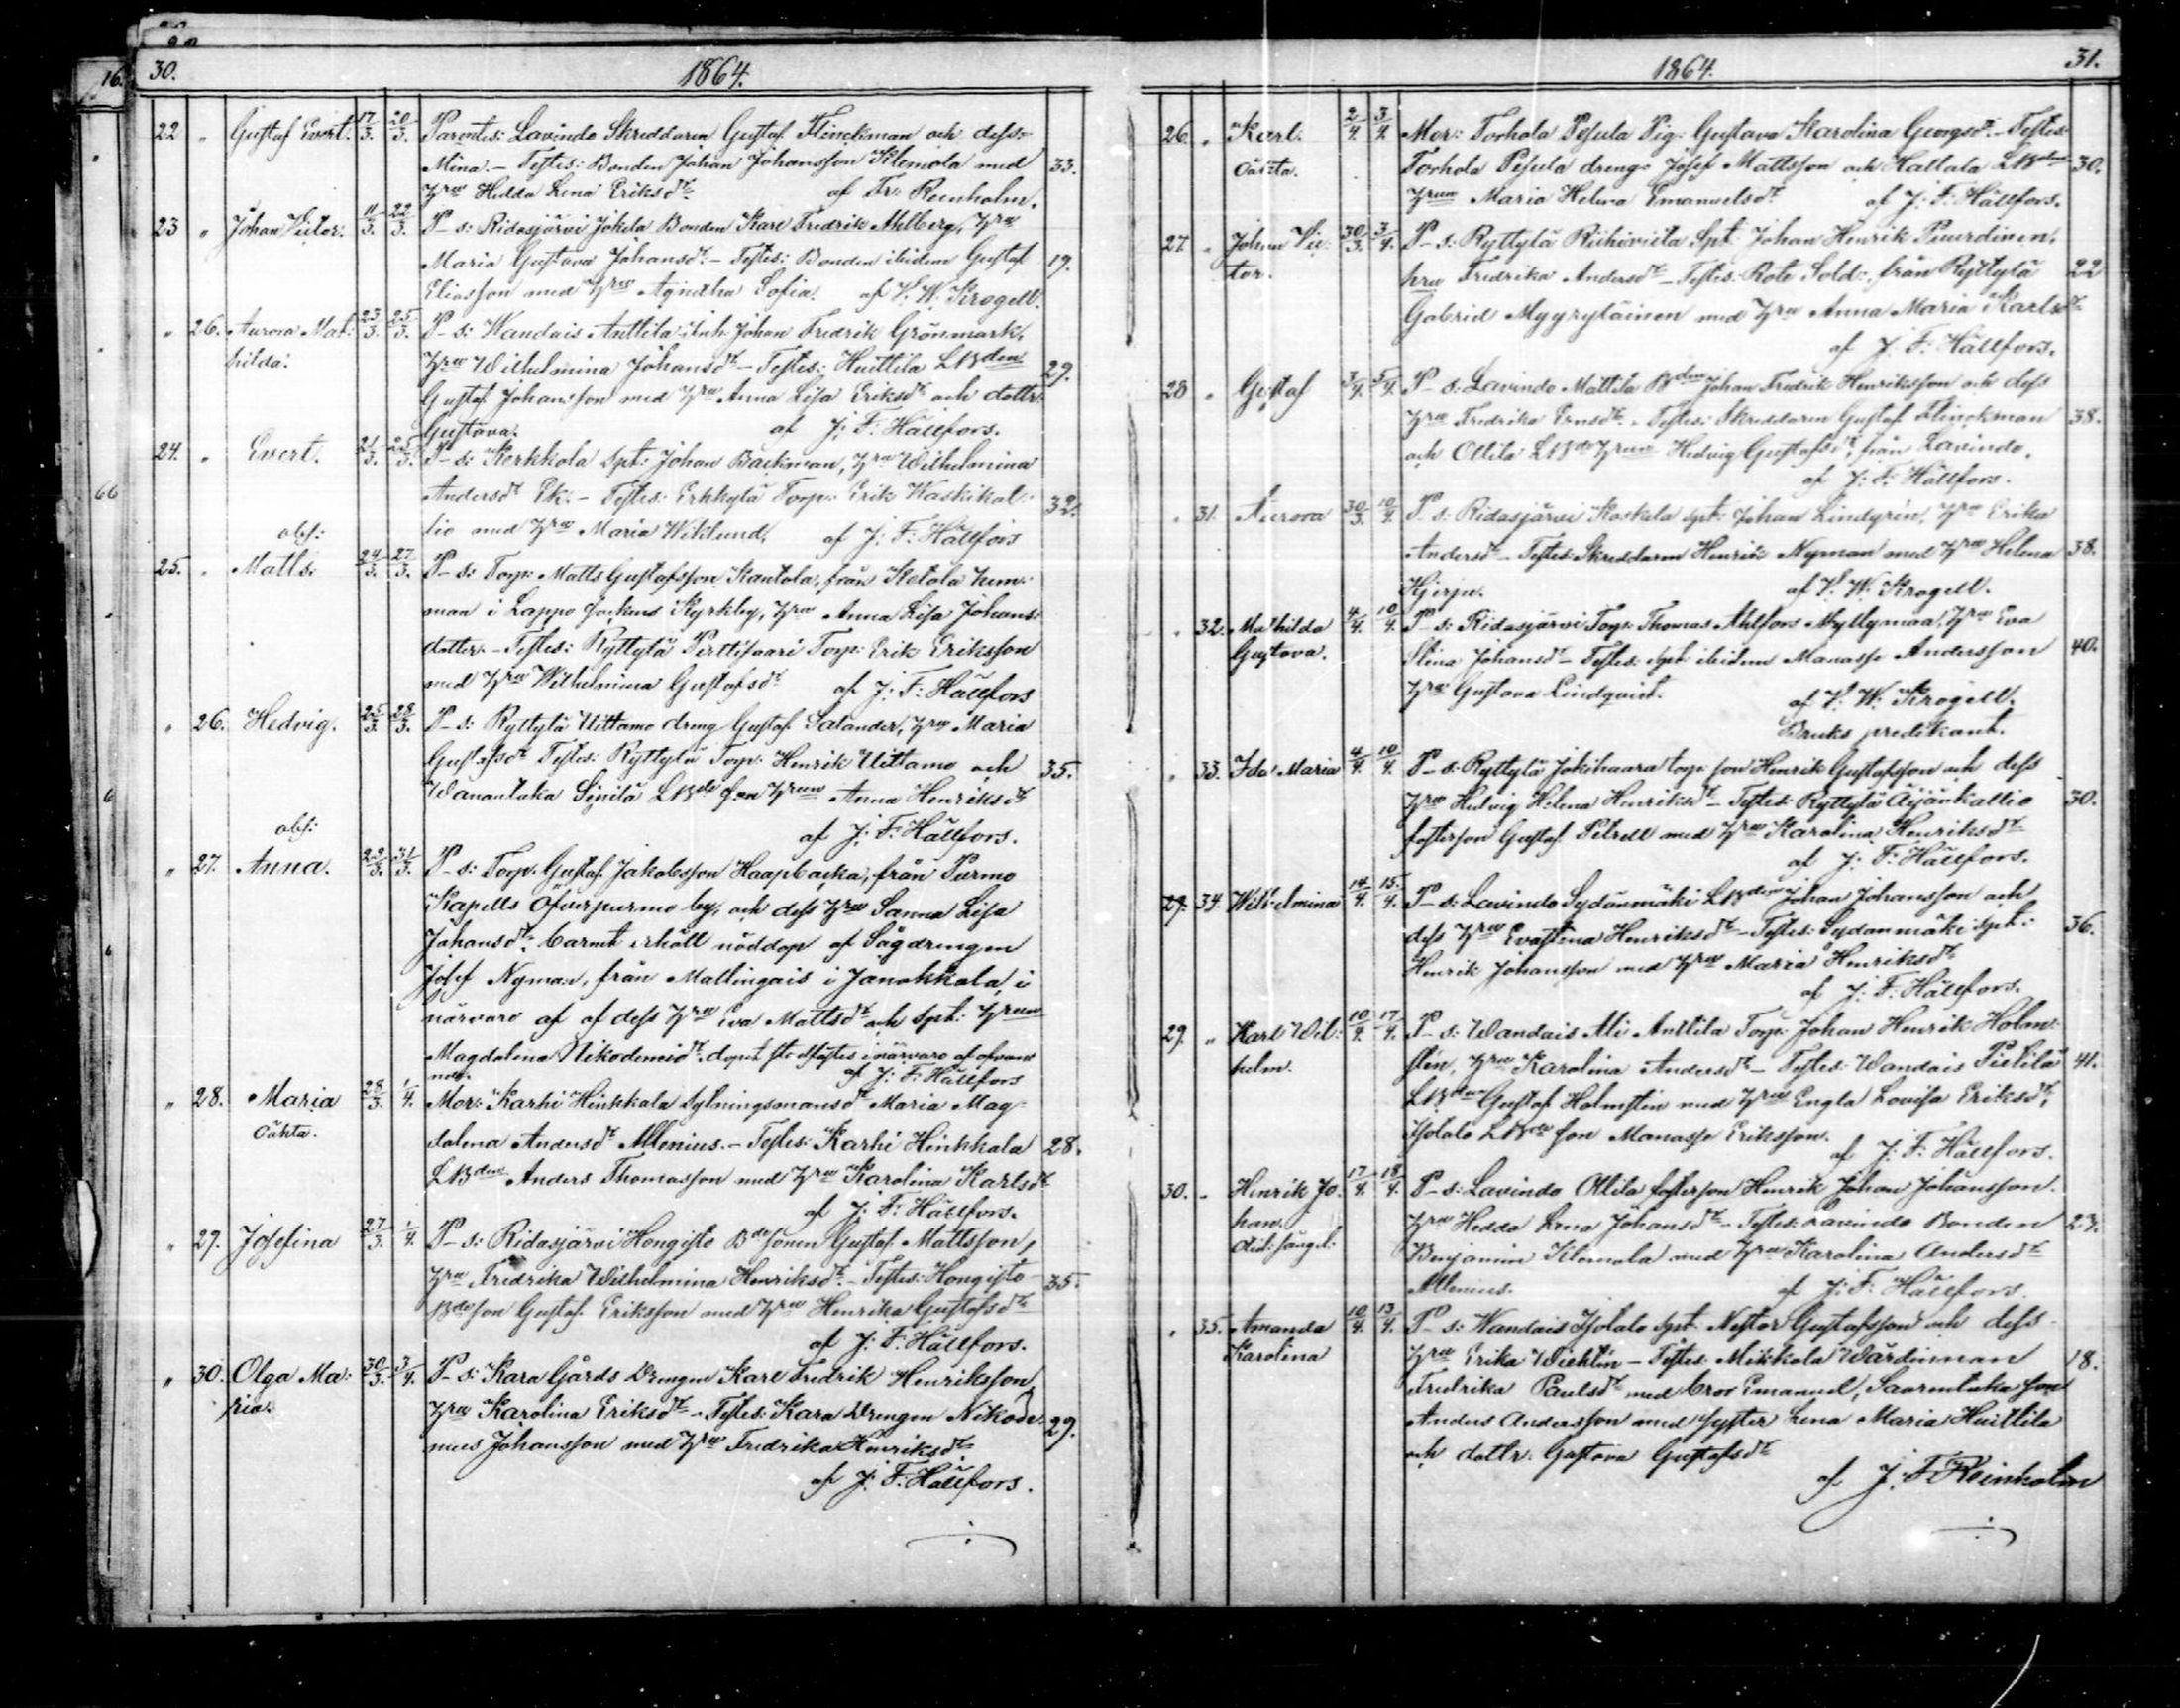 16.
30.
1864.
22 „ Gustaf Evert. 17/3. 20/3. Parentes: Lavindo Skreddaren Gustaf Flinckman och dess
Mina. – Testes: Bonden Johan Johansson Kilemola med 33.
Hru Hedda Lena Eriksdt af Fr: Renholm.
23 „ Johan Victor. 11/3. 22/3. P–s: Ridasjärvi Jokela Bonden Karl Fredrik Ahlberg, Hru
Maria Gustava Johansdt – Testes: Bonden ibidem Gustaf 19.
Eliasson med Hru Agnetha Sofia. af V. W. Krogell.
„ 26. Aurora Mat- 23/3. 25/3. P–s: Wandais Anttila Johan Fredrik Grönmark,
hilda. Hru Wilhelmina Johansdt – Testes: Huittila LBden 29.
Gustaf Johansson med Hru Anna Lisa Eriksdt och dottr.
Gustava. af J: F: Hällfors.
24. „ Evert. 21/3. 25/3. P–s: Kerkkola spt: Johan Backman, Hru Wilhelmina
66
Andersdt Ek. – Testes: Erkkylä Torp: Erik Waskikal- 32.
obs: lio med Hru Maria Wiklund. af J: F: Hällfors
25. „ Matts. 24/3. 27/3. P–s: Torp: Matts Gustafsson Kantola, från Ketola hem-
man i Lappo Sockens Kyrkby, Hru Anna Lisa Johans-
dotter. – Testes: Ryttylä Perttisaari Torp: Erik Eriksson
med Hru Wilhelmina Gustafsdt af J: F: Hällfors
„ 26. Hedvig. 25/3. 28/3. P–s: Ryttylä Uittamo dreng Gustaf Salander, Hru Maria
Gustafsdt Testes: Ryttylä Torp: Henrik Uittamo och 35.
Wanantaka Sipilä LBde son Hrun Anna Henriksdt
obs: af J: F: Hällfors.
„ 27. Anna. 22/3. 31/3. P–s: Torp: Gustaf Jakobsson Haapbacka, från Purmo
Kapells Öfverpurmo by, och dess Hru Sanna Lisa
Johansdt; barnet erhållt nöddop af Sågdrengen
Josef Nyman, från Mallingais i Janakkala, i
närvaro af af dess Hru Eva Mattsdt och spt: Hrun
Magdalena Nikodemidt. dopet stadfästes i närvaro af ofvan-
nde. af J: F: Hällfors
„ 28. Maria 28/3. 1/4. Mor: Karhi Hinkkala Sytningsmansdt Maria Mag-
oäkta. dalena Andersdt Allenius. – Testes: Karhi Hinkkala 28.
LBden Anders Thomasson med Hru Karolina Karlsdt
af J: F: Hällfors.
„ 29. Josefina 27/3. 1/4. P–s: Ridasjärvi Hongisto Bdesonen Gustaf Mattsson,
Hru Fredrika Wilhelmina Henriksdt. – Testes: Hongisto 35.
Bdeson Gustaf Eriksson med Hru Henrika Gustafsdt
af J: F: Hällfors.
„ 30. Olga Ma- 30/3. 3/4. P–s: Kara Gårds Drengen Karl Fredrik Henriksson,
ria. Hru Karolina Eriksdt – Testes: Kara Drengen Nikode- 29.
mus Johansson med Hru Fredrika Henriksdt
af J: F: Hällfors.
1864. 31.
26. „ Karl. 2/4. 3/4. Mor: Torhola Pesula Pig: Gustava Karolina Georgsdt – Testes:
oäkta. Torhola Pesula dreng: Josef Mattsson och Hallala LBdens 30.
Hrun Maria Helena Emanuelsdt af J: F: Hällfors.
27. „ Johan Vic- 30/3. 3/4. P–s: Ryttylä Riihiviita Spt: Johan Henrik Puurdinen,
tor. hru Fredrika Andersdt – Testes: Rote Sold:, från Ryttylä 22
Gabriel Myyryläinen med Hru Anna Maria Karlsdt
af J: F: Hällfors.
28 „ Gustaf 3/4. 5/4. P–s: Lavindo Mattila Bden Johan Fredrik Henriksson och dess
Hru Fredrika Ernsdt. – Testes: Skreddaren Gustaf Flinckman 38.
och Ollila LBde Hrun Hedvig Gustafsdt, från Lavindo.
af J: F: Hällfors.
„ 31. Aurora 30/3. 10/4. P–s: Ridasjärvi Koskela spt: Johan Lindgrén, Hru Erika
Andersdt – Testes: Skreddaren Henrik Nyman med Hru Helena 38.
Hjerpe. af V. W. Krogell.
„ 32. Mathilda 4/4. 10/4. P–s: Ridasjärvi Torp: Thomas Ahlfors Myllymaa, Hru Eva
Gustava. Stina Johansdt – Testes: spt: ibidem Manasse Andersson 40.
Hru Gustava Lindqvist. af V. W. Krogell.
Bruks predikant.
„ 33. Ida Maria 4/4. 10/4. P–s: Ryttylä Jokihaara torp: son Henrik Gustafsson och dess
Hru Hedvig Helena Henriksdt – Testes: Ryttylä Äijänkallio 30.
fosterson Gustaf Petrell med Hru Karolina Henriksdt
af J: F: Hällfors.
29. 34. Wilhelmina 14/4. 15/4. P–s: Lavindo Sydänmäki LBden Johan Johansson och
dess Hru Evastina Henriksdt – Testes: Sydänmäki spt: 36.
Henrik Johansson med Hru Maria Henriksdt
af J: F: Hällfors.
29. „ Karl Wil- 10/4. 17/4. P–s: Wandais Ali Anttila Torp: Johan Henrik Holm-
helm. stén, Hru Karolina Andersdt – Testes: Wandais Pietilä 41.
LBden Gustaf Holmstén med Hru Engla Lovisa Eriksdt,
Isotalo LBde son Manasse Eriksson. af J: F: Hällfors.
30. „ Henrik Jo- 17/4. 18/4. P–s: Lavindo Ollila fosterson Henrik Johan Johansson.
han. Hru Hedda Lena Johansdt – Testes: Lavindo Bonden 23.
Benjamin Kilemola med Hru Karolina Andersdt
Allenius. af J: F: Hällfors.
„ 35. Amanda 10/4. 13/4. P–s: Wandais Isotalo spt: Nestor Gustafsson och dess
Karolina Hru Erika Wicklén – Testes: Mikkola Wärdinnan 18.
Fredrika Paulsdt med bror Emanuel, Saarentaka son
Anders Andersson med syster Lena Maria Huittila
och dottr. Gustava Gustafsdt
af J. F. Reinholm